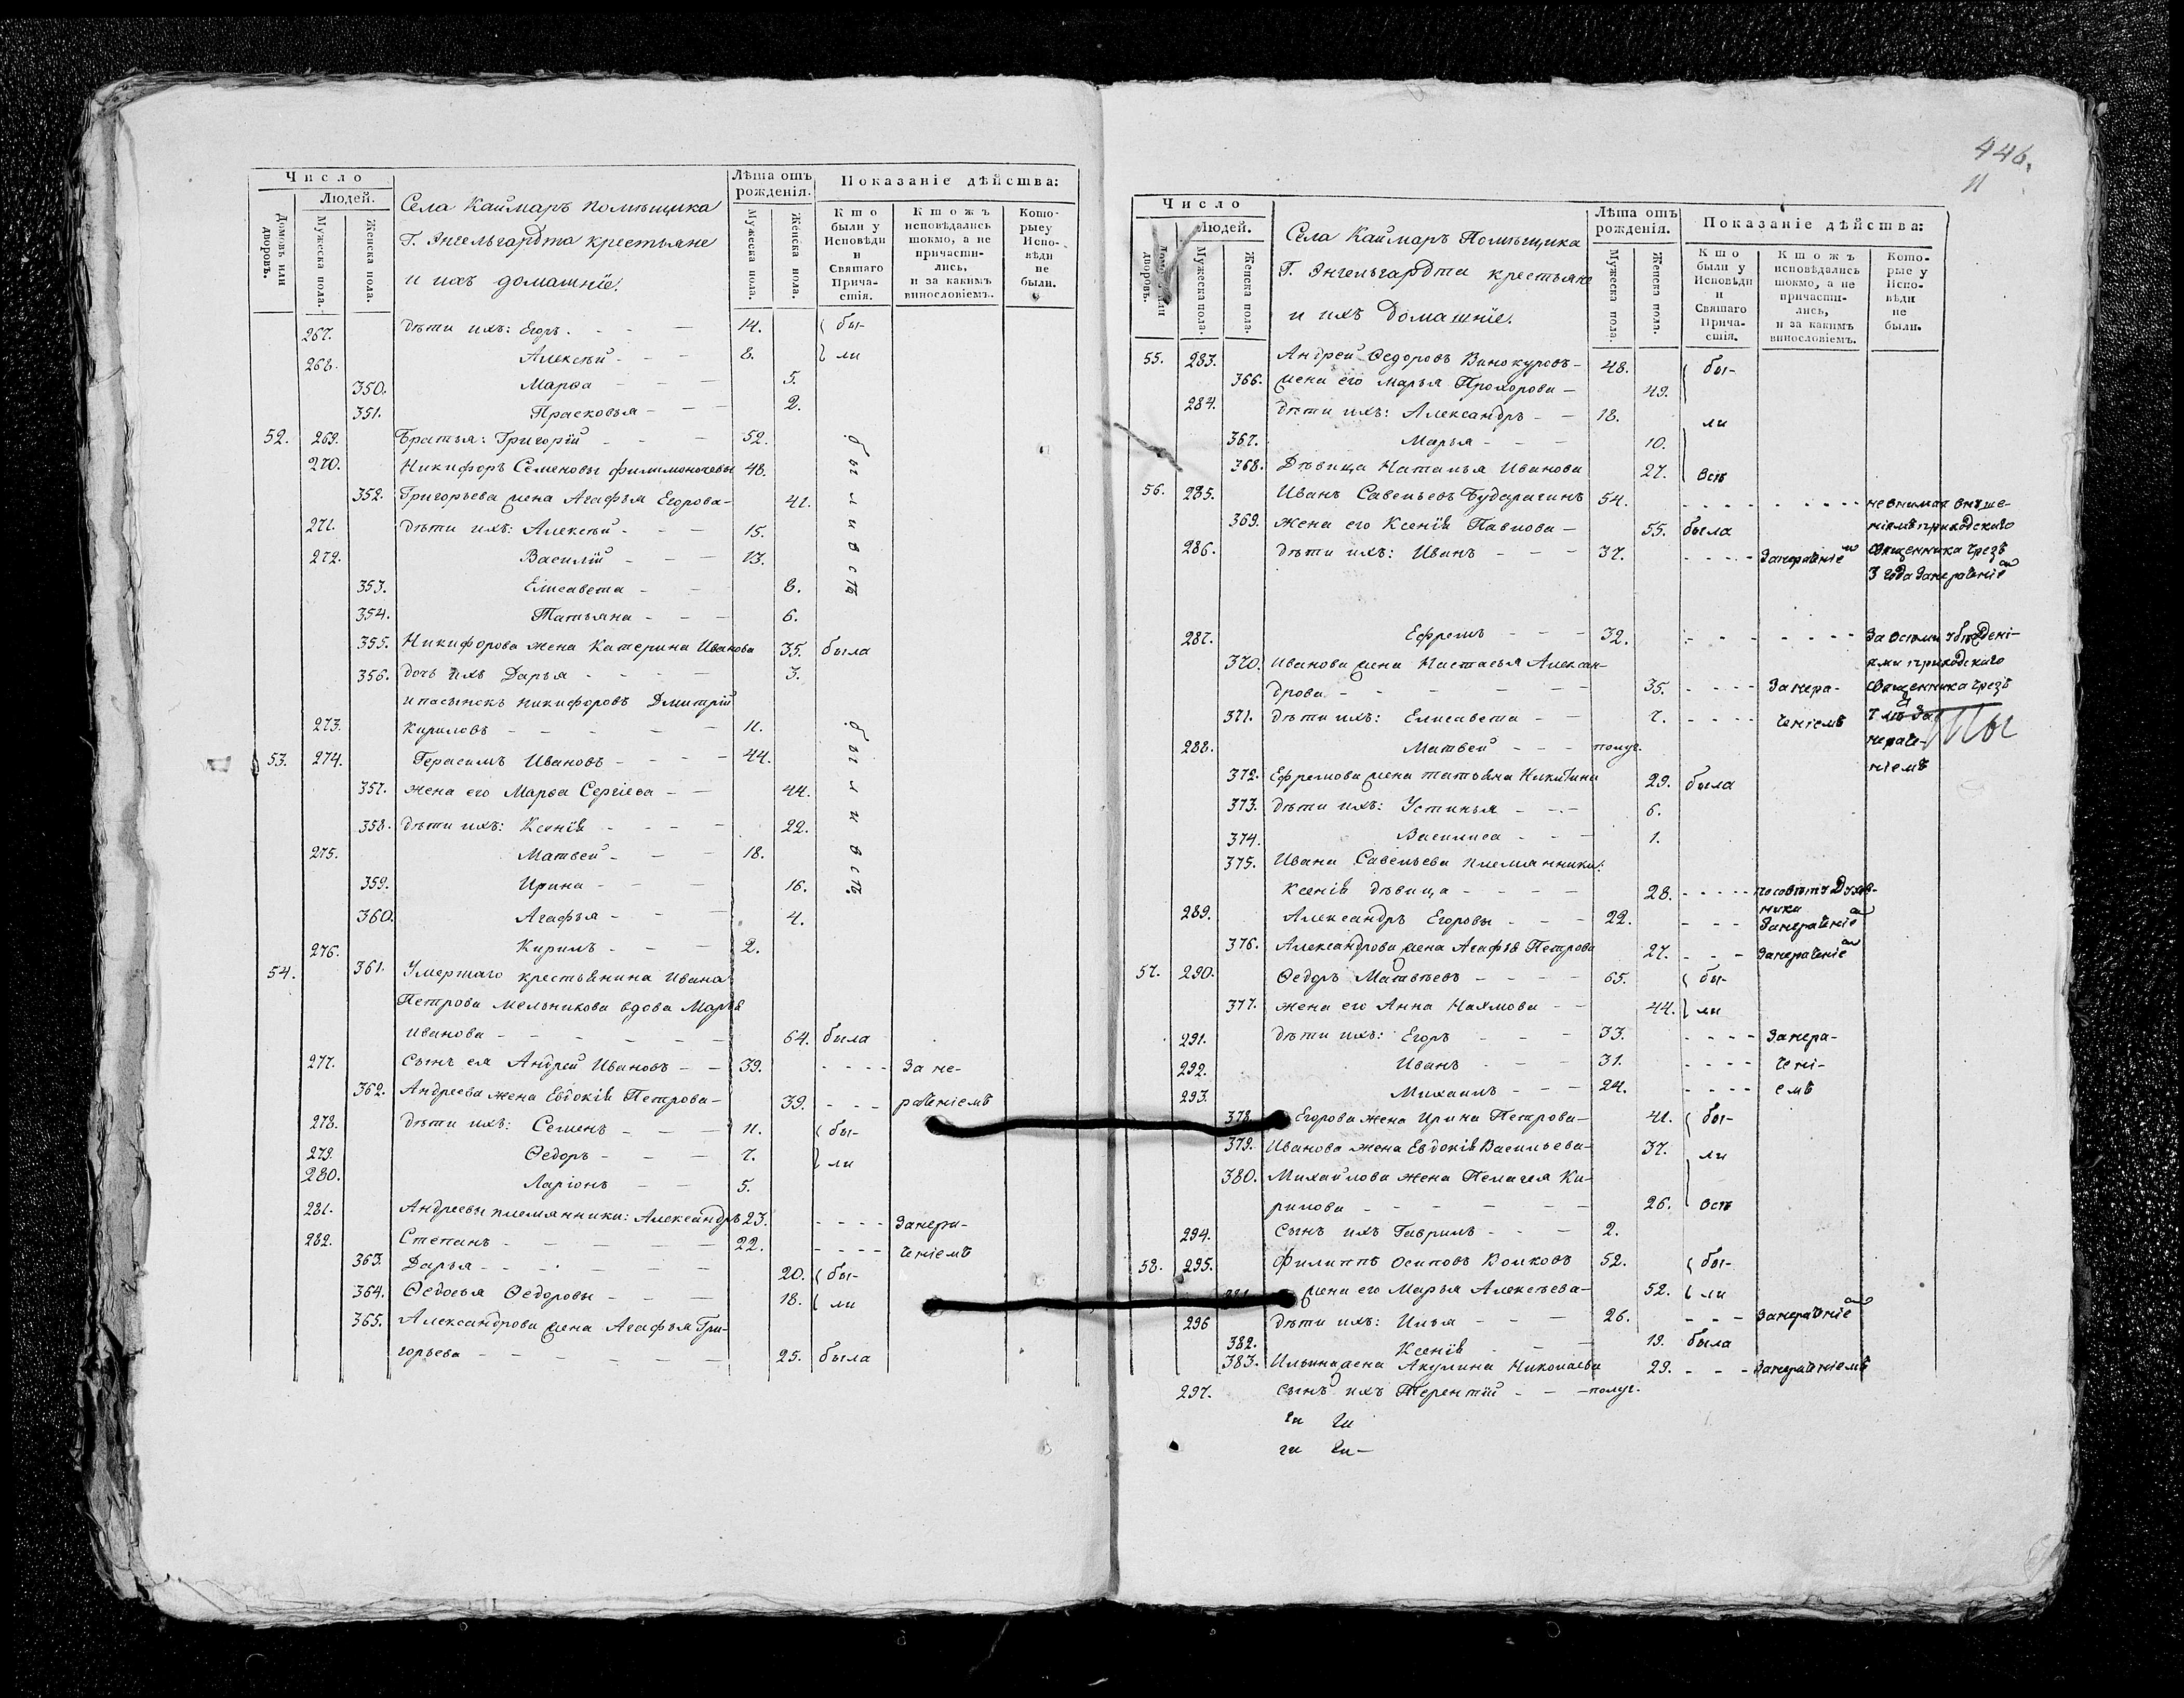 Число
Людей.
Домовъ или дворовъ.
Мужеска пола.
Женска пола.
Села Каймаръ помѣщика
Г. Энгельгардта крестьяне
и ихъ домашніе.
Лѣта отъ рожденія.
Мужеска пола.
Женска пола.
Показаніе дѣйства:
Кто были у Исповѣди и Святаго Причастія.
Ктожъ исповѣдались токмо, а не причастились, и за какимъ винословіемъ.
Которые у Исповѣди не были.
267. дѣти ихъ: Егоръ - - 14. бы-
268. Алексѣй - - 8. ли
350. Марѳа - - 5.
351. Прасковья - - 2.
52. 269. Братья: Григорій - - 52. были всѣ
270. Никифоръ Семеновы 48.
352. Григорьева жена Агафья Егорова - 41.
271. дѣти ихъ: Алексѣй - - 15.
272. Василій - - 13.
353. Елисавета - - 8.
354. Татьяна - - 6.
355. Никифорова жена Катерина Иванова 35. была
356. дочь ихъ Дарья - - 3.
и пасынокъ никифоровъ Дмитрій
273. Кириловъ - - 11.
53. 274. Герасимъ Ивановъ - - 44. были всѣ
357. жена его Марѳа Сергіева - - 44.
358. дѣти ихъ: Ксенія - - 22.
275. Матвей - - 18.
359. Ирина - - 16.
360. Агафья - - 4.
276. Кирилъ - - 2.
54. 361. Умершаго крестьянина Ивана
Петрова Мельникова вдова Марья
Иванова - - 64. была
277. Сынъ ея Андрей Ивановъ - - 39. - - - - За не-
362. Андреева жена Евдокія Петрова - 39. - - - раченіемъ
278. дѣти ихъ: Семенъ - - 11. бы-
279. Ѳедоръ - - 7. ли
280. Ларіонъ - - 5.
281. Андреевы племянники: Александръ 23. - - - - Занера-
282. Степанъ - - 22. - - - - ченіемъ
363. Дарья - - 20. бы-
364. Ѳедосья Ѳедоровы - - 18. ли
365. Александрова жена Агафья Гри-
горьева - - 25. была
446.
Число
Людей.
дворовъ.
Мужеска пола.
Женска пола.
Села Каймаръ Помѣщика
Г. Энгельгардта крестьяне
и ихъ Домашніе.
Лѣта отъ рожденія.
Мужеска пола.
Женска пола.
Показаніе дѣйства:
Кто были у Исповѣди и Святаго Причастія.
Ктожъ исповѣдались токмо, а не причастились, и за какимъ винословіемъ.
Которые у Исповѣди не были.
55. 283. Андрей Ѳедоровъ Винокуровъ - 48. бы-
366. жена его Марья Прохорова - 49.
284. дѣти ихъ: Александръ - - 18. ли
367. Марья - - 10.
368. Дѣвица Наталья Иванова 27. всѣ
56. 285. Иванъ Савельевъ 54. - - - - невнимая внуше-
369. жена его Ксенія Павлова - 55. была ніямъ приходскаго
286. дѣти ихъ: Иванъ - - 37. - - - - Занераченіе священника чрезъ
3 года Занераченіе
287. Ефремъ - - 32. - - - - За всѣми убѣдені-
370. Иванова жена Настасья Алексан- ями приходскаго
дрова - - 35. - - - - Занера- священника чрезъ
371. дѣти ихъ: Елисавета - - 7. - - - - ченіемъ
288. Матвей - - полуг. нераче-
372. Ефремова жена татьяна Никитина 29. была ніемъ
373. дѣти ихъ: Устинья - - 6.
374. Василиса - - 1.
375. Ивана Савельева племянники:
Ксенія дѣвица - - 28. - - - - посовѣту Духов-
ника
289. Александръ Егоровы - - 22. - - - Занераченіе
376. Александрова жена Агафья Петрова 27. - - - Занераченіе
57. 290. Ѳедоръ Матвѣевъ - - 65. бы-
377. жена его Анна Наумова - - 44. ли
291. дѣти ихъ: Егоръ - - 33. - - - - Занера-
292. Иванъ - - 31. - - - - чені-
293. Михаилъ - - 24. - - - - емъ
378. Егорова жена Ирина Петрова - 41. бы-
379. Иванова жена Евдокія Васильева - 37. ли
380. Михайлова жена Пелагея Ки-
рилова - - 26. всѣ
294. Сынъ ихъ Гаврилъ - - 2.
58. 295. Филиппъ Осиповъ Волковъ 52. бы-
жена его Марья Алексѣева - 52. ли
296 дѣти ихъ: Илья - - 26. - - - Занераченіе
382. Ксенія - - 19. была
383. Ильина жена Акулина Николаева 29. - - - Занераченіемъ
297. сынъ ихъ Терентій - - полуг.